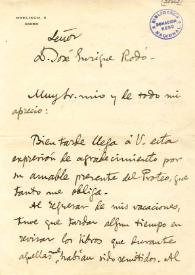 Señor
D. José Enrique Rodó.
Muy Sr. mio y de todo mi
aprecio:
Bien tarde llega á V. esta
expresión de agradecimiento por
su amable presente del Proteo, que
tanto me obliga.
Al regresar de mis vacaciones,
tuve que tardar algun tiempo en
revisar los libros que durante
aquellas habian sido remitidos. Al